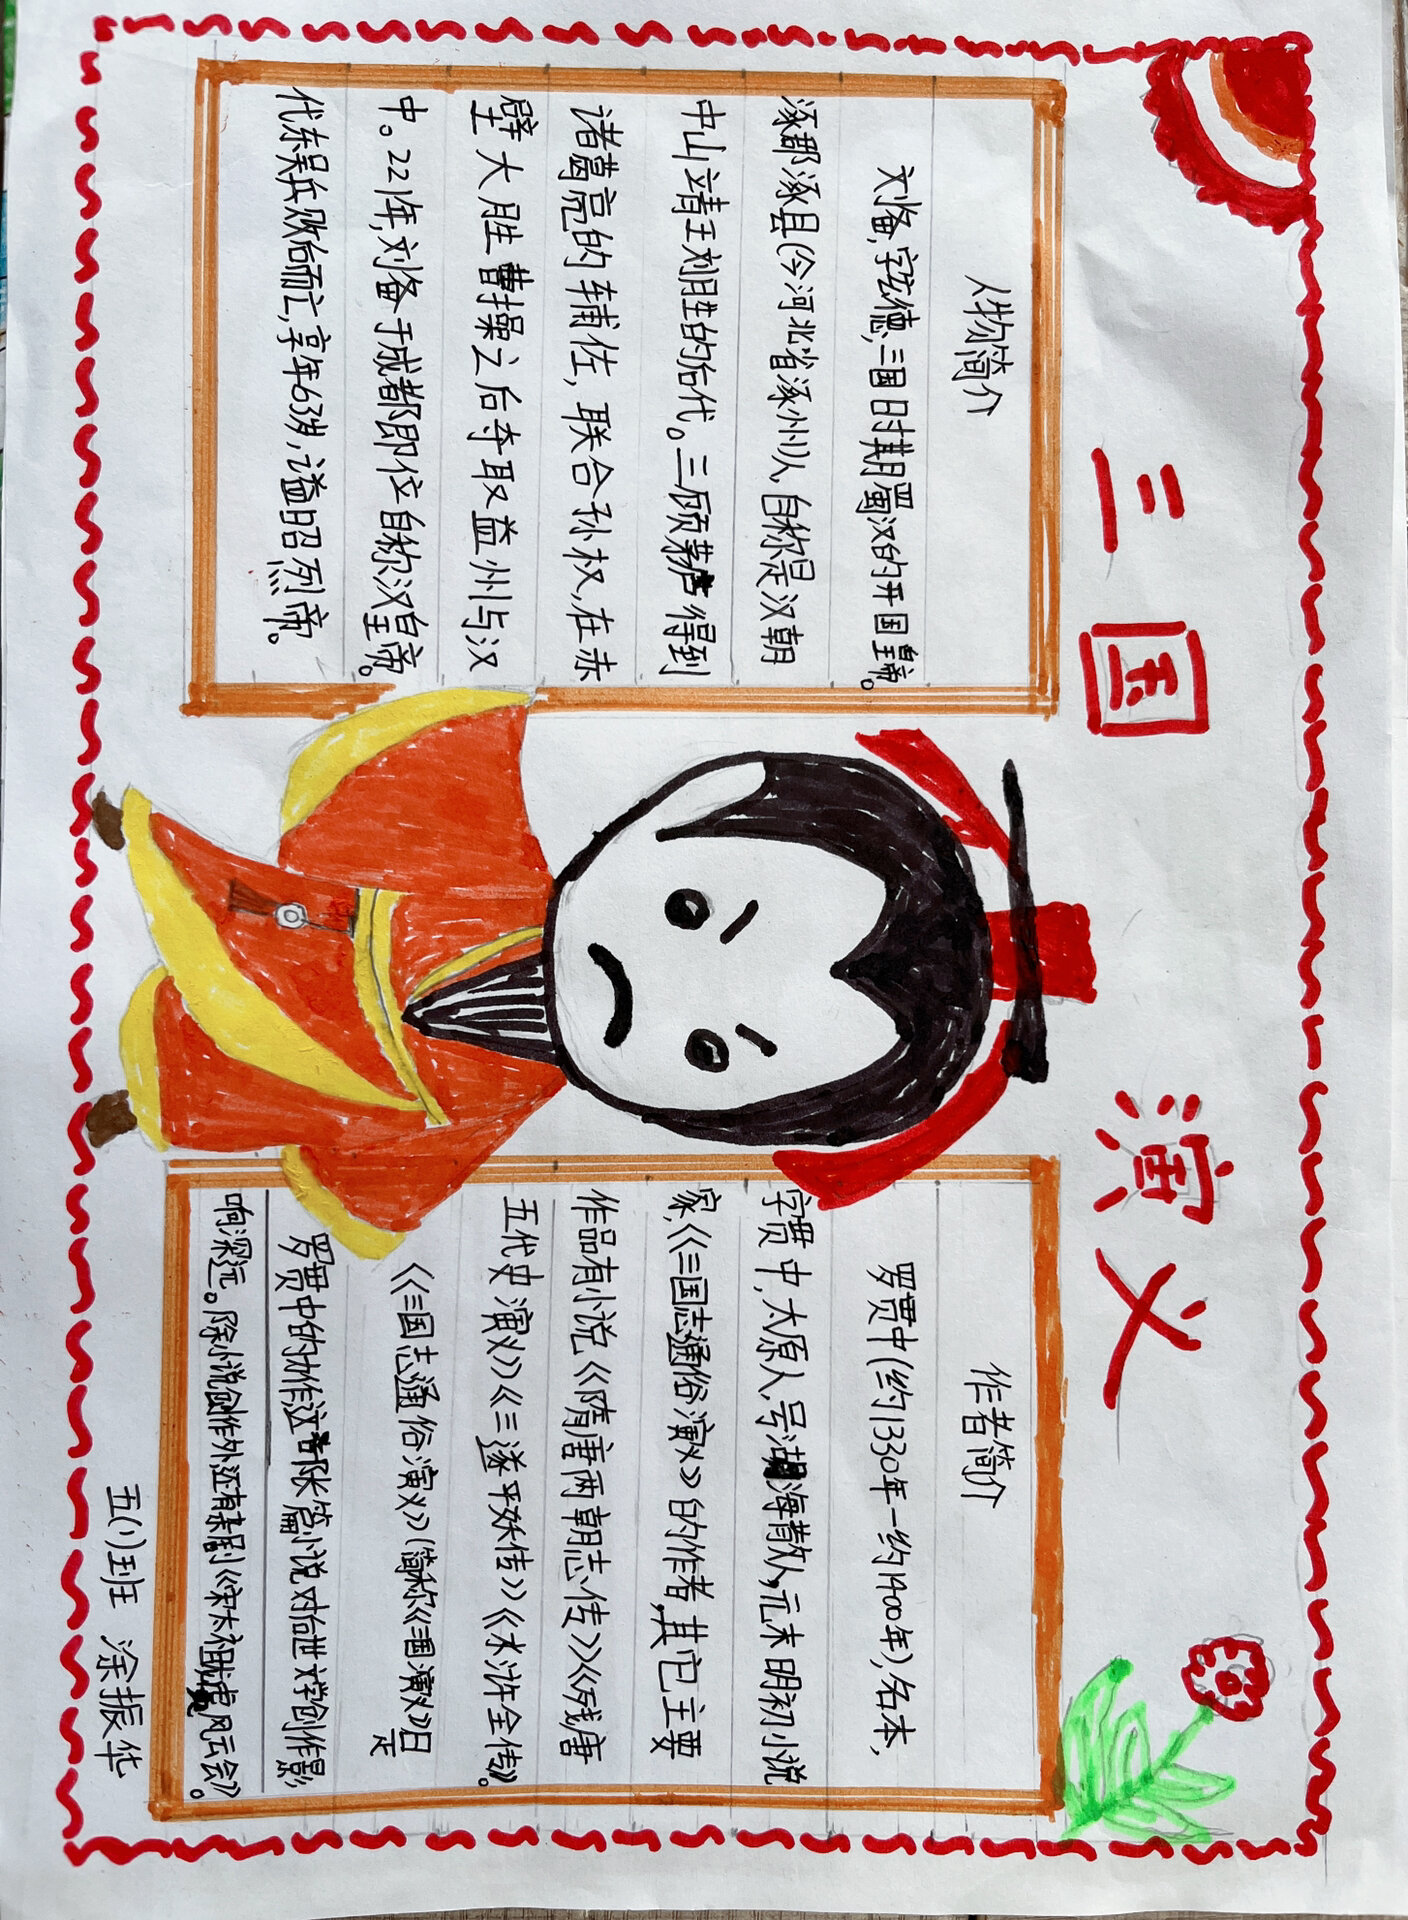 三国演义
人物简介
刘备,字玄德,三国时期蜀汉的开国皇帝。
涿郡涿县(今河北省涿州)人,自称是汉朝
中山靖王刘胜的后代。三顾茅庐得到
诸葛亮的辅佐,联合孙权,在赤
壁大胜曹操之后夺取益州与汉
中。221年,刘备于成都即位自称汉皇帝。
代东吴兵败后而亡,享年63岁,谥昭烈帝。
作者简介
罗贯中(约1330年—约1400年),名本,
字贯中,太原人,号湖海散人,元末明初小说
家,《三国志通俗演义》的作者,其它主要
作品有小说《隋唐两朝志传》《残唐
五代史演义》《三遂平妖传》《水浒全传》。
《三国志通俗演义》(简称《三国演义》是
罗贯中的力作,这部长篇小说对后世文学创作影
响深远。除小说创作外,还有杂剧《宋太祖龙虎风云会》。
五(1)班 涂振华